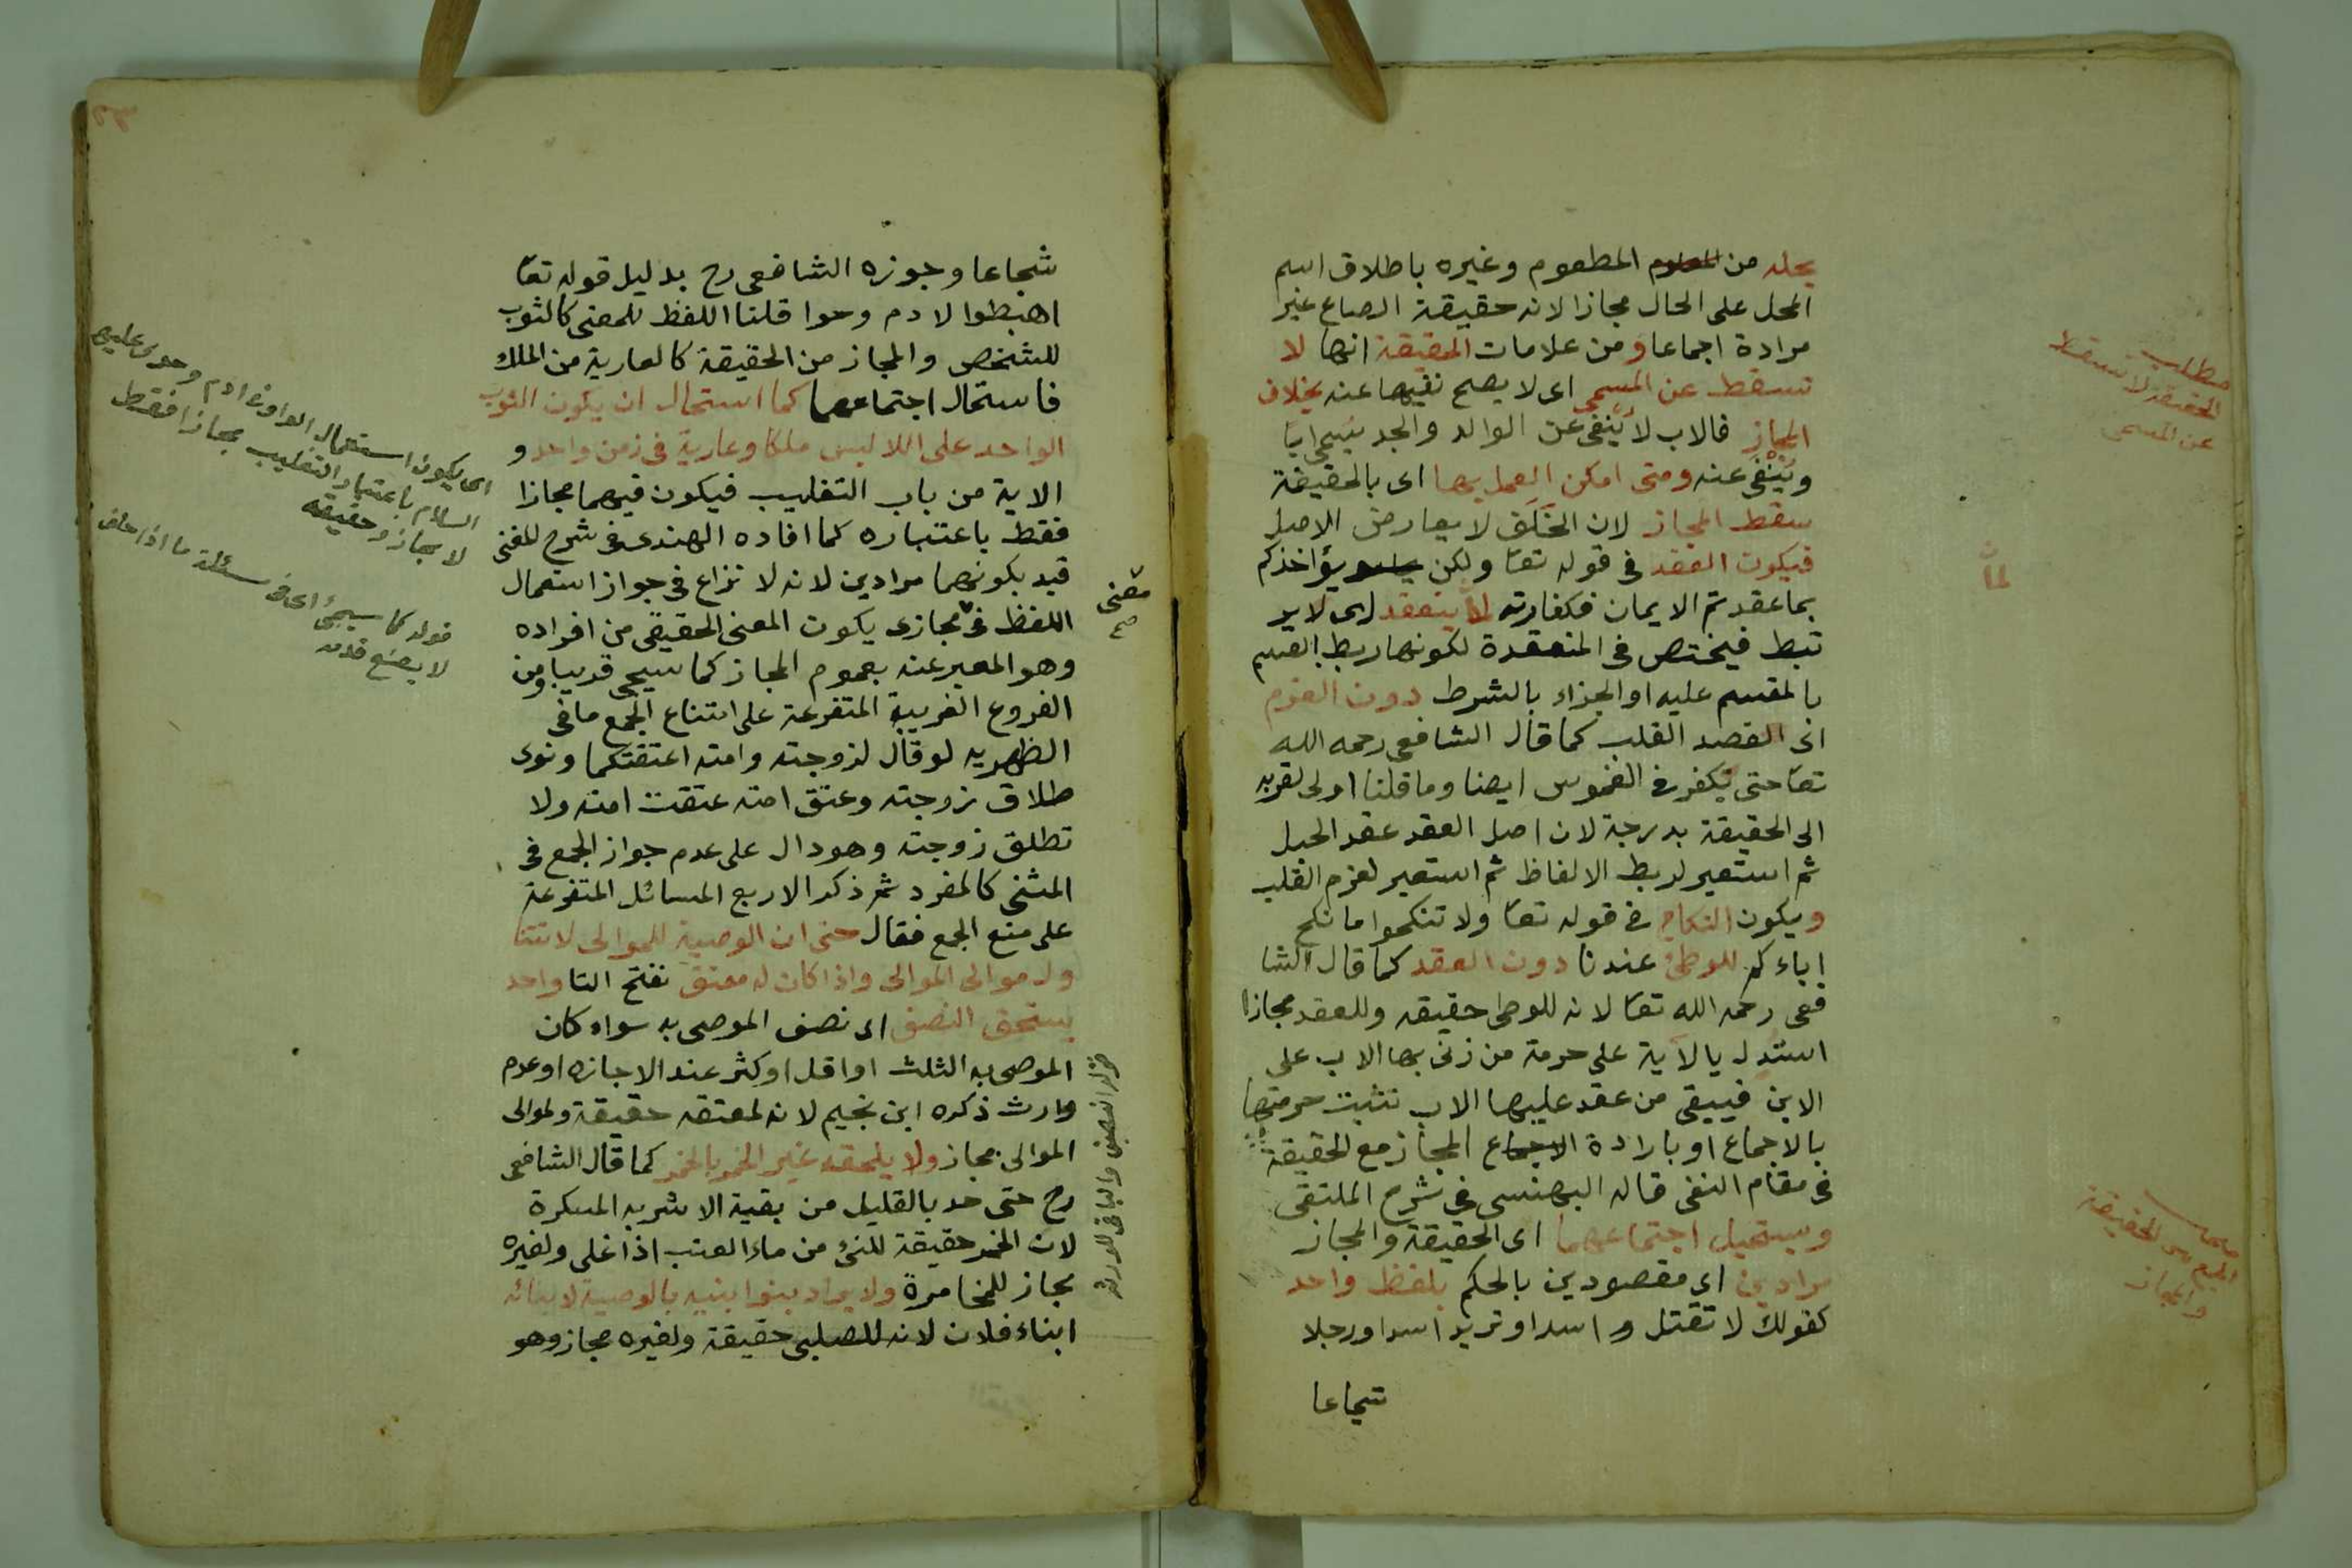 يحله من المطعوم وغيره باطلاق اسم
المحل على الحال مجازا لانه حقيقة الصاع غير
مرادة اجماعا ومن علامات الحقيقة انها لا
تسقط عن المسمى اى لا يصح نفيها عنه بخلاف
المجاز فالاب لا ينفى عن الوالد والجد يسمى ابا
وينفى عنه ومتى امكن العمل بها اى بالحقيقة
سقط المجاز لان الخلف لا يعارض الاصل
فيكون العقد فى قوله تعا ولكن يؤاخذكم
بما عقدتم الايمان فكفارته لما ينعقد اى لاير
تبط فيختص فى المنعقدة لكونها ربط القسم
بالمقسم عليه او الجزاء بالشرط دون العزم
اى القصد القلب كما قال الشافعى رحمه الله
تعا حتى يكفر فى الغموس ايضا وما قلنا اولى لقربه
الى الحقيقة بدرجة لان اصل العقد عقد الحبل
ثم استعير لربط الالفاظ ثم استعير لعزم القلب
ويكون النكاح فى قوله تعا ولا تنكحوا ما نكح
اباءكم للوطئ عندنا دون العقد كما قال الشا
فعى رحمه الله تعا لانه للوطى حقيقه وللعقد مجازا
استدل بالاية على حرمة من زنى بها الاب على
الابن فيبقى من عقد عليها الاب تثبت حرمتها
بالاجماع او بارادة المجاز مع الحقيقة
فى مقام النفى قاله البهنسى فى شرح الملتقى
ويستحيل اجتماعهما اى الحقيقة والمجاز
مرادين اى مقصودين بالحكم بلفظ واحد
كقولك لا تقتل اسدا وتريد اسدا ورجلا
شجاعا
مطلب
الحقيقة لا تسقط
عن المسمى
الجمع بين الحقيقة
والمجاز
شجاعا وجوزه الشافعى رح بدليل قوله تعا
اهبطوا لادم وحوا قلنا اللفظ للمعنى كالثوب
للشخص والمجاز من الحقيقة كالعارية من الملك
فاستحال اجتماعهما كما استحال ان يكون الثوب
الواحد على اللابس ملكا وعارية فى زمن واحد و
الاية من باب التغليب فيكون فيهما مجازا
فقط باعتباره كما افاده الهندى فى شرح المغنى
قيد بكونهما مرادين لانه لا نزاع فى جواز استعمال
اللفظ فى مجازى يكون المعنى الحقيقى من افراده
وهو المعبر عنه بعموم المجاز كما سيجى قريبا ومن
الفروع الغريبة المتفرعة على امتناع الجمع ما فى
الظهريه لو قال لزوجته وامته اعتقتكما ونوى
طلاق زوجته وعتق امته عتقت امته ولا
تطلق زوجته وهو دال على عدم جواز الجمع فى
المثنى كالمفرد ثم ذكر الاربع المسائل المتفرعة
على منع الجمع فقال حتى ان الوصية للموالى لا تتنا
ول موالى الموالى واذا كان له معتق بفتح التا واحد
يستحق النصف اى نصف الموصى به سواء كان
الموصى به الثلث او اقل او كثر عند الاجازه او عدم
وارث ذكره ابن نجيم لانه لمعتقه حقيقة ولموالى
الموالى مجاز ولا يلحقه غير الخمر بالخمر كما قال الشافعى
رح حتى حد بالقليل من بقية الاشربه المسكرة
لان الخمر حقيقة للنئ من ماء العنب اذا غلى ولغيره
مجاز للمخامرة ولا يراد بنوا بنيه بالوصية لابنائه
ابناء فلان لانه للصلبى حقيقة ولغيره مجاز وهو
معنى
صح
اى يكون استعمال الواو فى ادم وحوى عليهم
السلام باعتبار التغليب مجازا فقط
لا مجاز وحقيقه
قوله كما سيجئ اى فى مسئلة ما اذا حلف
لا يضع قدمه